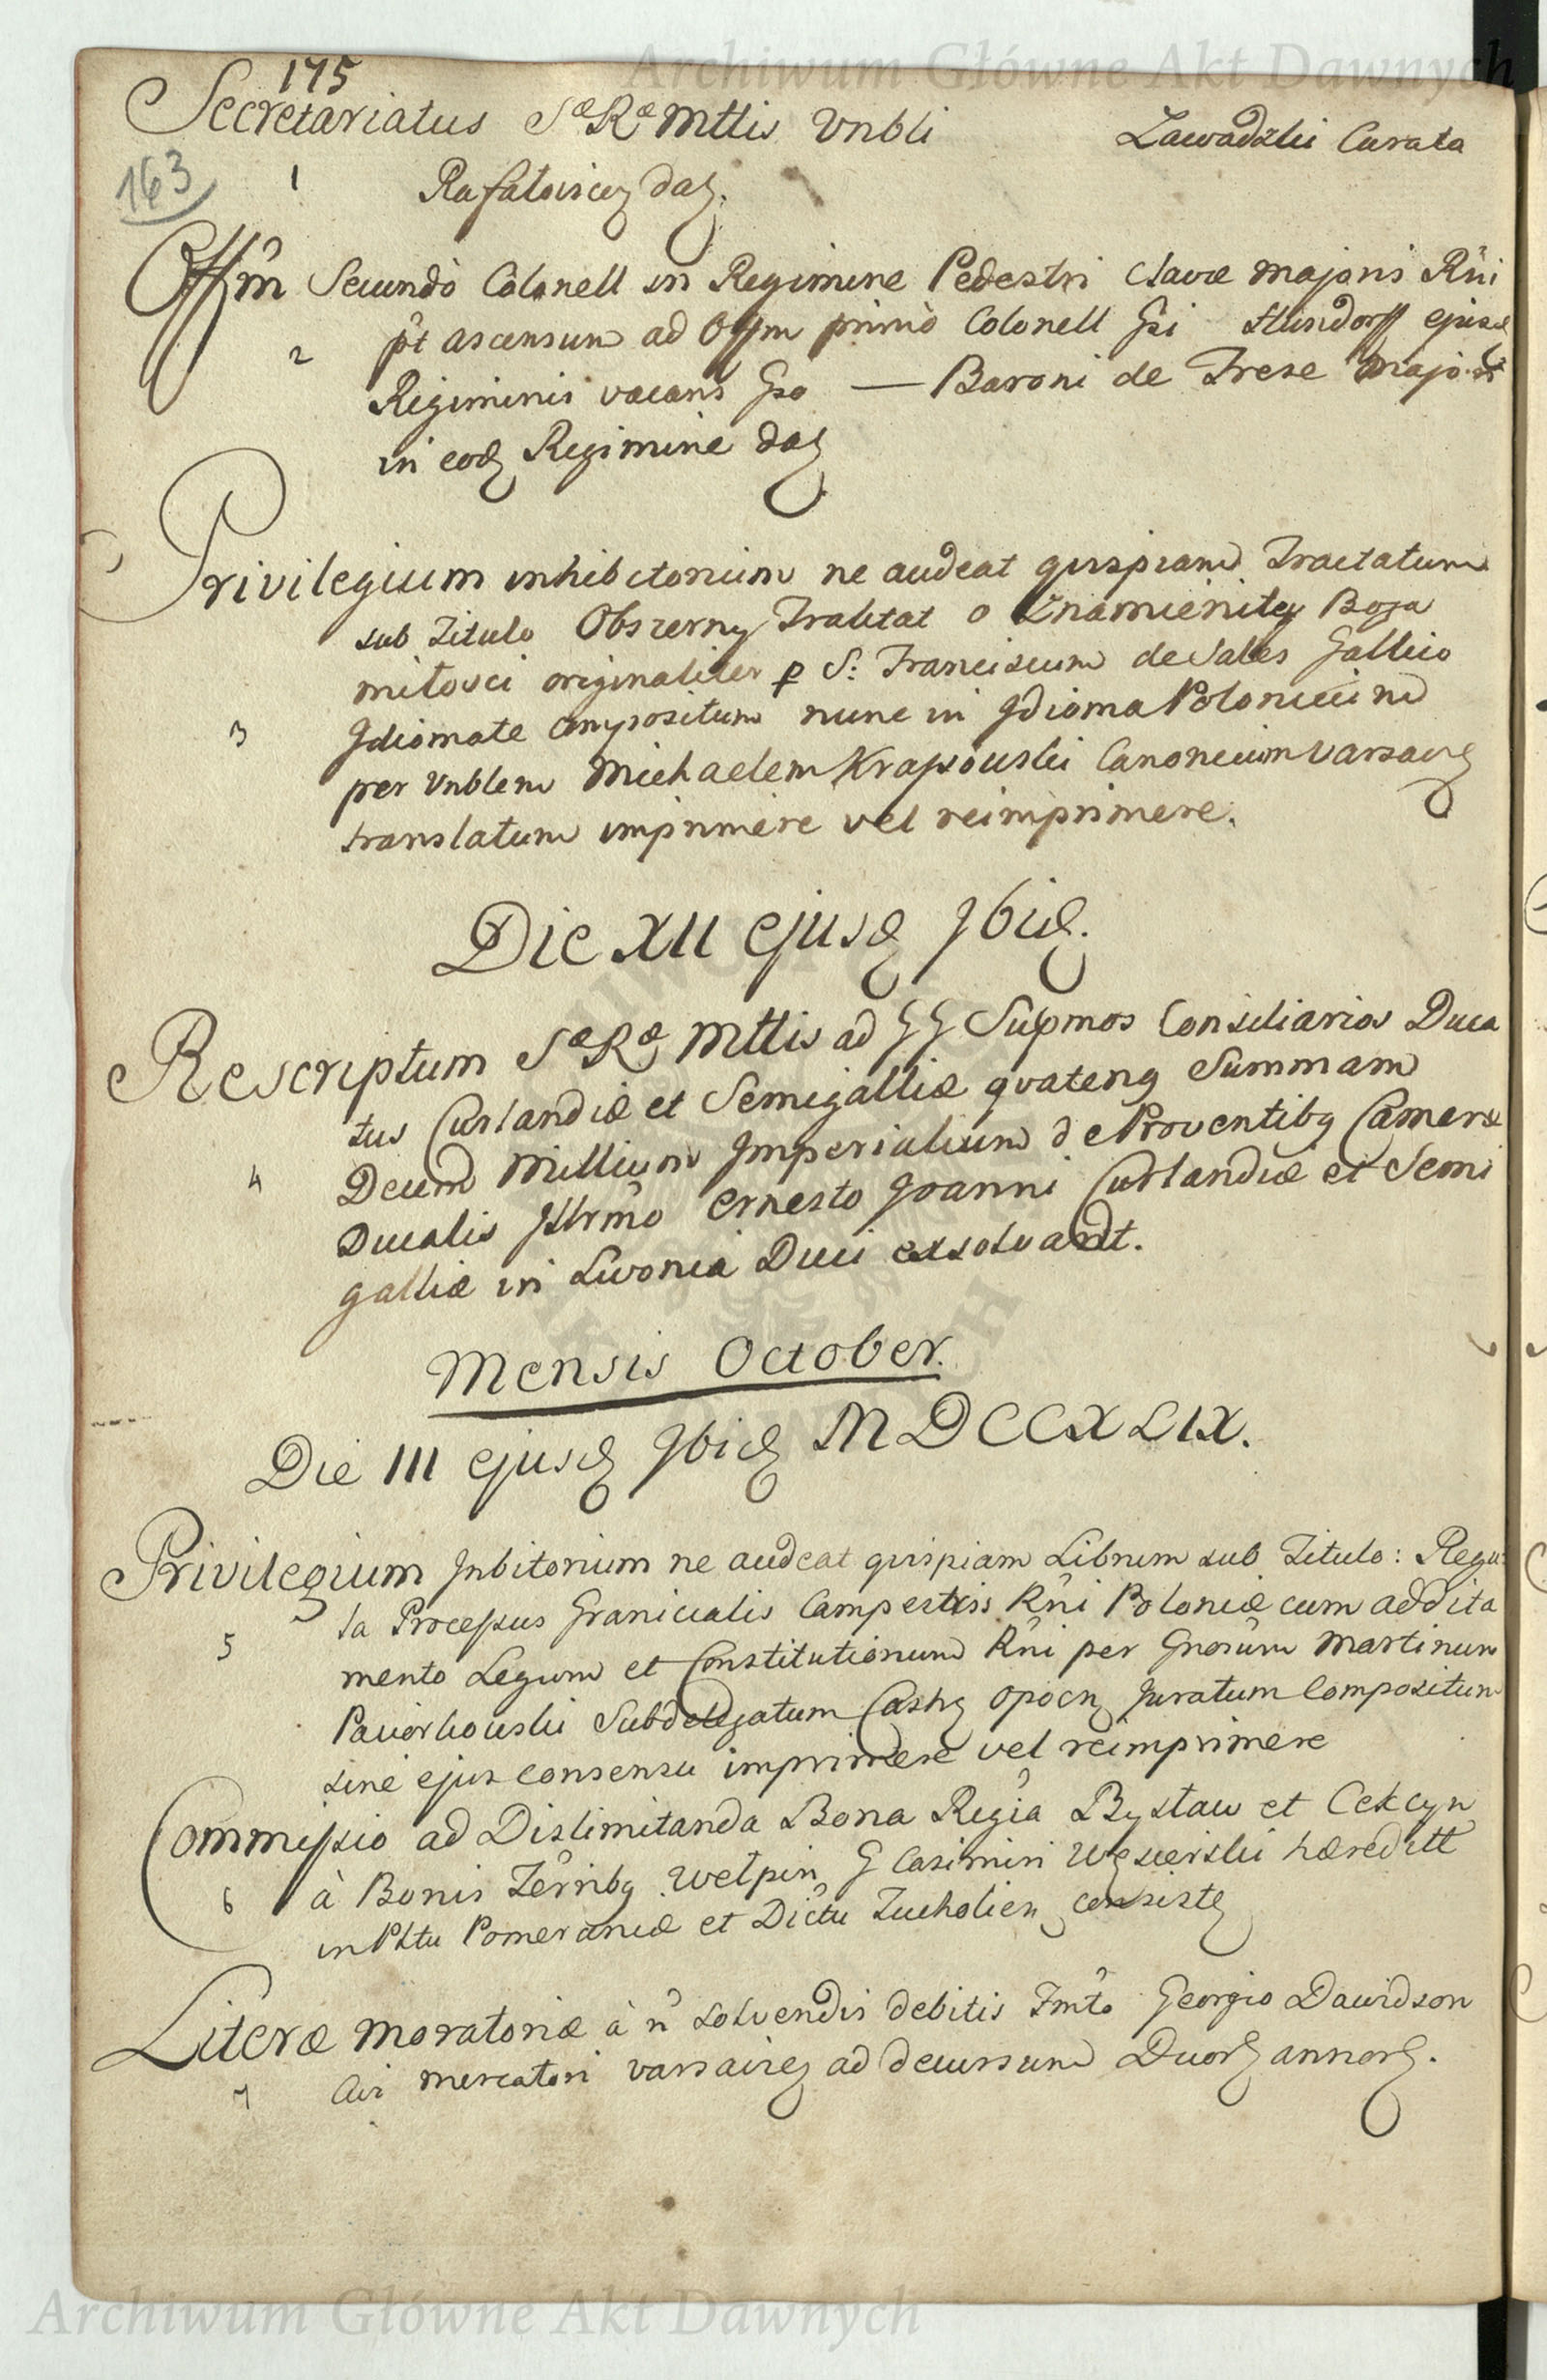 Archiwum Główne Akt Dawnych
175
Secretariatus Sæ Ræ Mttis Vnbli Zawadzki Curato
163
1 Rafałovicen dat.
Offm Secundo Colonell in Regimine Pedestri Clavæ Majoris Rni
2 pt ascensum ad Offm primo Colonell Gsi ejusd
Regiminis vacans Gso — Baroni de Frese Majori
in eod Regimine dat
Privilegium inhibitorium ne audeat quispiam Tractatum
sub Titulo Obszerny Traktat o Znamienitey Boga
miłosci originaliter p S: Franciscum de Sales Gallico
3 Idiomate compositum nunc in Idioma Polonicum
per Vnblem Michaelem Krassowski Canonicum Varsav
translatum imprimere vel reimprimere.
Die XII ejusd ibid.
Rescriptum Sæ Ræ Mttis ad GG Supmos Consiliarios Duca
tus Curlandiæ et Semigalliæ quateng Summam
4 Decem Millium Imperialium de Proventibg Cameræ
Ducalis Illrmo Ernesto Joanni Curlandiæ et Semi
galliæ in Livonia Duci exsolvant.
Mensis October.
Die III ejusd ibid MDCCXLIX.
Privilegium Inbitorium ne audeat quispiam Librum sub Titulo: Regu
5 la Processus Granicialis Campestris Rni Poloniæ cum addita
mento Legum et Constitutionum Rni per Gnosum Martinum
Subdelegatum Castr Opocn Juratum Compositum
sine ejus consensu imprimere vel reimprimere
Commissio ad Dislimitanda Bona Regia Bysław et Cekcyn
6 à Bonis Terribg Wełpin G Casimiri hæreditt
in Pttu Pomeraniæ et Dictu Tucholien consisten
Literæ Moratoriæ à n solvendis debitis Fmto Georgio Dawidson
7 Civi mercatori varsavien ad decursum Duor annor.
Archiwum Główne Akt Dawnych